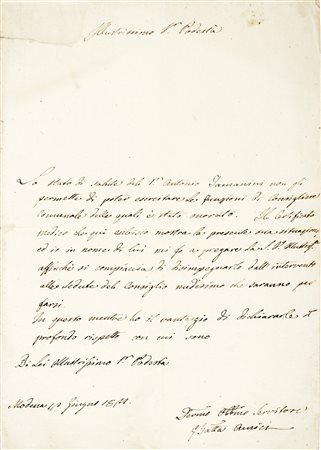 Illustrissimo Sr. Podestà
Lo stato di salute del Sr. Antonio Tamanini non gli
permette di poter esercitare le funzioni di Consigliere
Comunale delle quali è stato onorato. Il Certificato
medico che qui unisco mostra la presente sua situazione
ed io in nome di lui mi fo a pregare la S.V. Illustrss.
affinchè si compiaccia di disimpegnarlo dall'intervento
alle Sedute del Consiglio medesimo che saranno per
farsi.
In questo mentre ho il vantaggio di dichiararle il
profondo rispetto con cui sono
Di Lei Illustrissimo Sr. Podestà
Modena Giugno
Devmo Obbmo Servitore